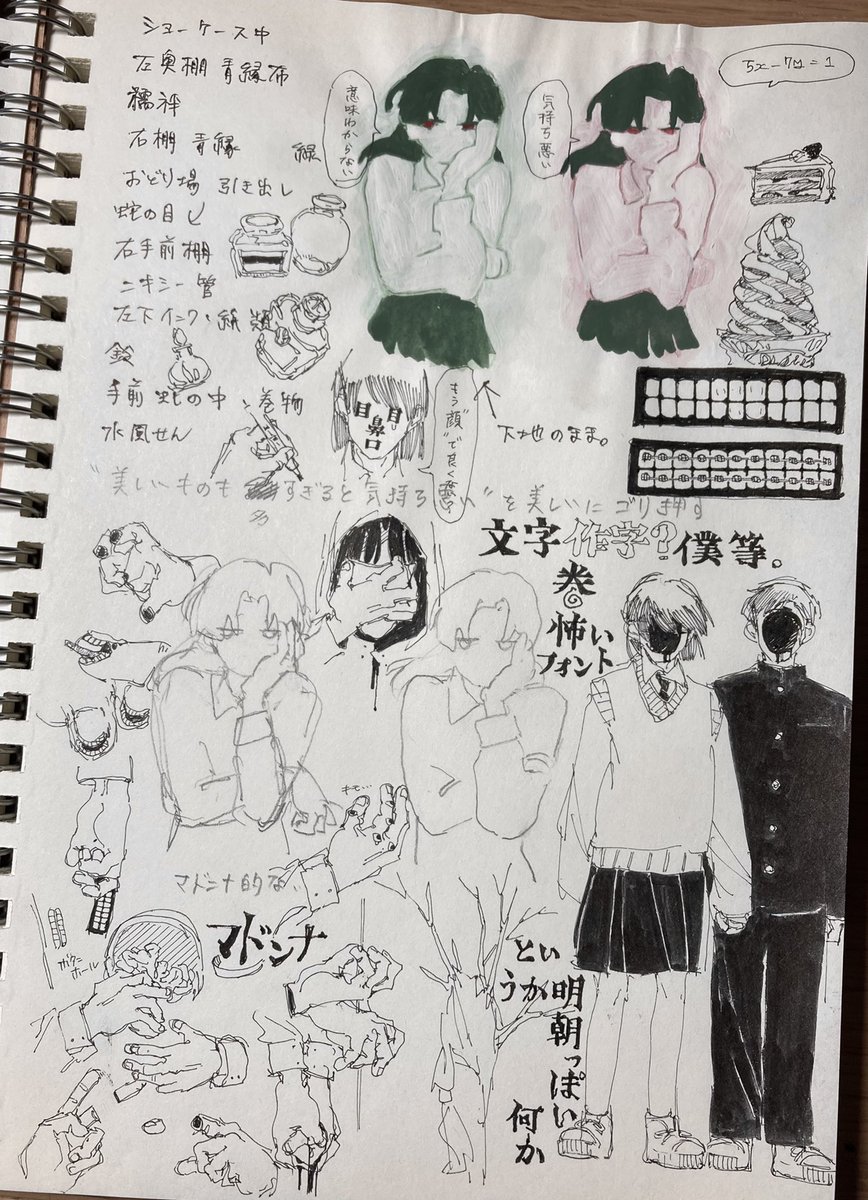 ショーケース中
左奥棚 青縁布
襦袢
右棚 青縁
緑
おどり場 引き出し
蛇の目
右手前棚
ニキシー管
左下インク・紙類
鈴
手前 蛇の中、巻物
水風せん
意味わからない
気持ち悪い
5x-7y=1
目 目
鼻
口
もう"顔"で良くね?
下地のまま。
"美しいものも すぎると気持ち悪い"を美しいにゴリ押す
多
文字 作字?僕等。
巻
怖い
フォント
マドンナ的な
マドンナ
ホール
という
か明朝っぽい
何か